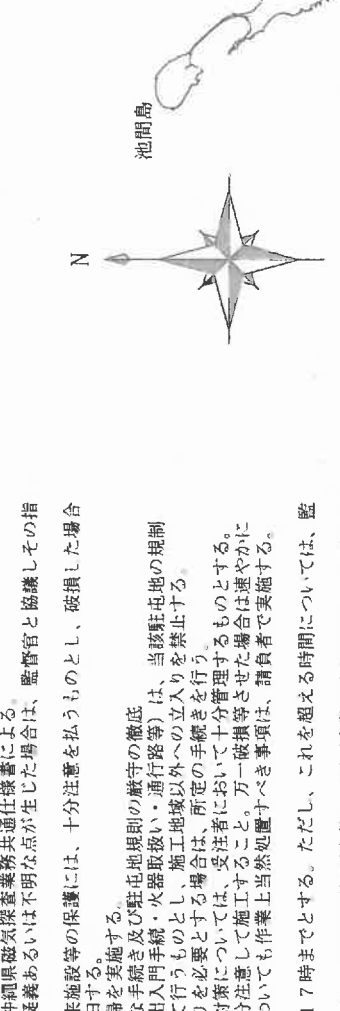 沖縄県磁気探査業務共通仕様書による。
疑義あるいは不明な点が生じた場合は、監督官と協議しその指
来施設等の保護には、十分注意を払うものとし、破損した場合
旧する。
掃を実施する。
な手続き及び駐屯地規則の厳守の徹底
出入門手続・火器取扱い・通行路等）は、当該駐屯地の規制
て行うものとし、施工地域以外への立入りを禁止する
りを必要とする場合は、所定の手続きを行う。
対策については、受注者において十分管理するものとする。
分注意して施工すること。万一破損等させた場合は速やかに
ついても作業上当然処置すべき事項は、請負者で実施する。
１７時までとする。ただし、これを超える時間については、監
N
池間島